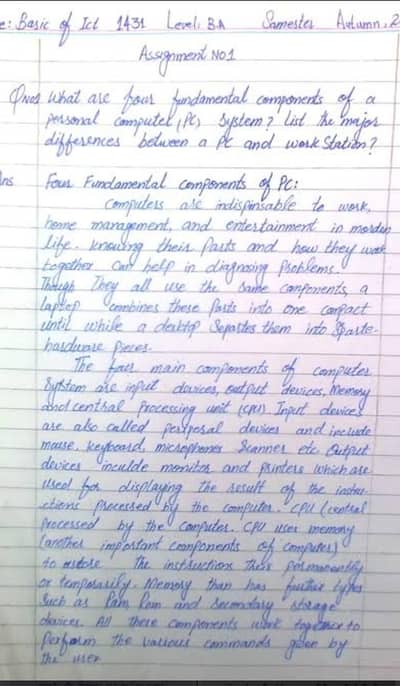 e: Basic of Ict 1431 Level: B.A Samester Autumn. 2
Assignment NO1
QNo1 What are four fundamental components of a
personal computer (Pc) System? List the major
differences between a PC and work Station?
Ans Four Fundamental components of PC:
Computers are indispinsable to work,
home management, and entertainment in morden
life. knowing their Parts and how they work
together can help in diagnosing Problems.
Though They all use the same components, a
laptop combines these Parts into one compact
until while a desktop Separtes them into Sparte-
hardware pieces.
The four main components of computer
System are input davices, output devices, Memory
and central Processing unit (cpu) Input devices
are also called perposal devices and include
mause, keyboard, microphones Scanner etc. Output
devices inculde monitors and printers which are
used for displaying the result of the instru-
ctions processed by the computer. CPU (central
processed by the computer. CPU uses memory
(another important components of computers)
to restore the instructions thus permanently
or temporarily. Memory than has further types
Such as Ram, Rom and Secondary storage
devices. All these components work together to
Perform the various commands given by
the user